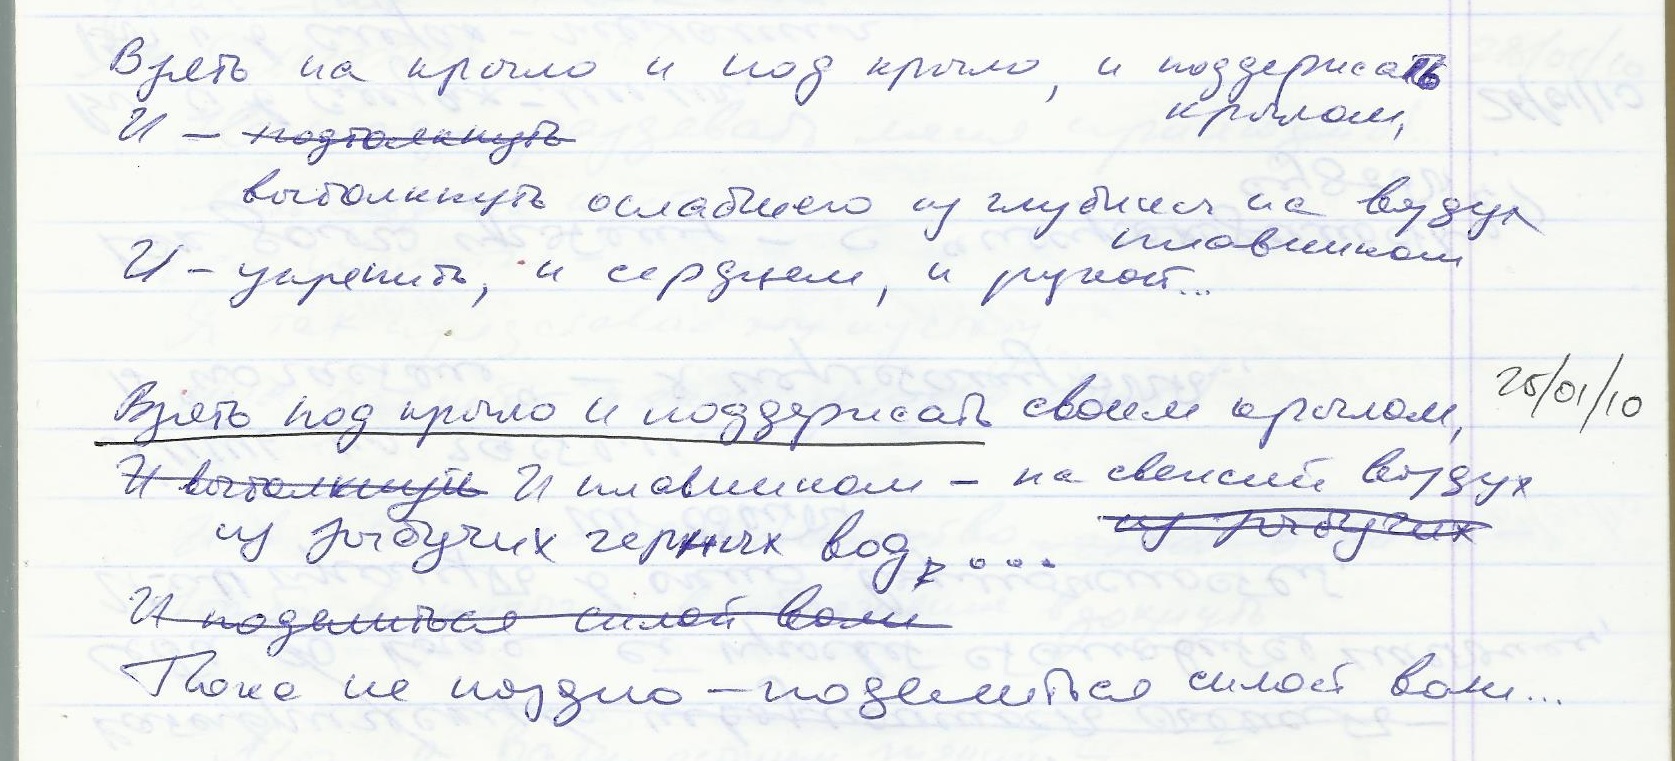 Взять на крыло и под крыло, и поддержать
крылом,
И – подтолкнуть
вытолкнуть ослабшего из глубины на воздух
плавником
И – укрепить, и сердцем, и рукой...
25/01/10
Взять под крыло и поддержать своим крылом,
И вытолкнуть И плавником – на свежий воздух
из зыбучих черных вод, .... из зыбучих
И поделиться силой воли
Пока не поздно – поделиться силой воли...